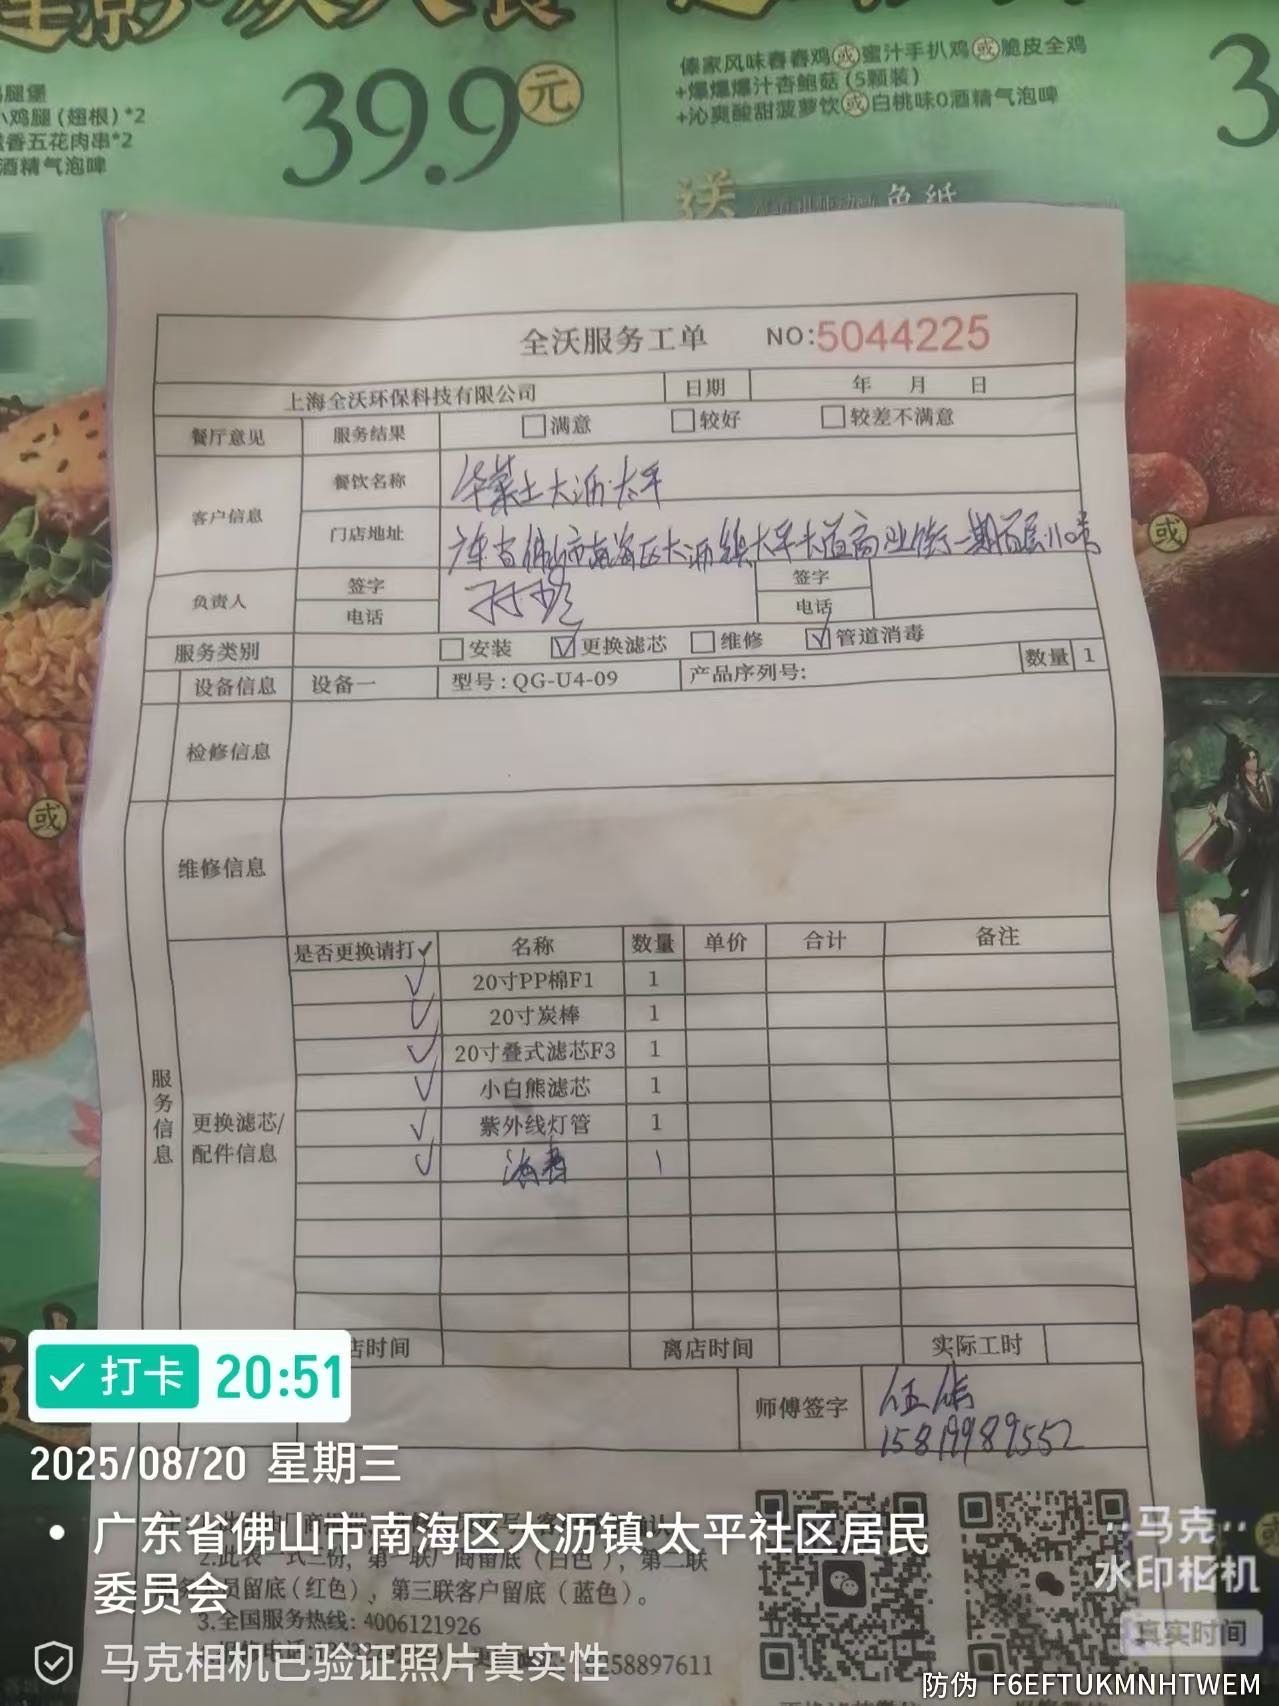 39.9元
鸡腿堡
小鸡腿(翅根)*2
香五花肉串*2
酒精气泡啤
傣家风味春春鸡或蜜汁手扒鸡或脆皮全鸡
+爆爆爆汁杏鲍菇(5颗装)
+沁爽酸甜菠萝饮或白桃味0酒精气泡啤
3
送
兔纸
或
或
全沃服务工单 NO:5044225
上海全沃环保科技有限公司 日期 年 月 日
餐厅意见 服务结果 满意 较好 较差不满意
客户信息 餐饮名称 华莱士大沥太平
门店地址 广东省佛山市南海区大沥镇太平大道商业街一期首层110号
负责人 签字 签字
电话 电话
服务类别 安装 更换滤芯 维修 管道消毒
设备信息 设备一 型号:QG-U4-09 产品序列号: 数量 1
检修信息
维修信息
服务信息
更换滤芯/
配件信息
是否更换请打✓ 名称 数量 单价 合计 备注
✓ 20寸PP棉F1 1
✓ 20寸炭棒 1
✓ 20寸叠式滤芯F3 1
✓ 小白熊滤芯 1
✓ 紫外线灯管 1
✓ 消毒 1
店时间 离店时间 实际工时
师傅签字
15819989552
2.此表一式三份,第一联厂商留底(白色),第二联
员留底(红色),第三联客户留底(蓝色)。
3.全国服务热线:4006121926
58897611
打卡 20:51
2025/08/20 星期三
广东省佛山市南海区大沥镇·太平社区居民
委员会
马克相机已验证照片真实性
马克
水印相机
真实时间
防伪 F6EFTUKMNHTWEM